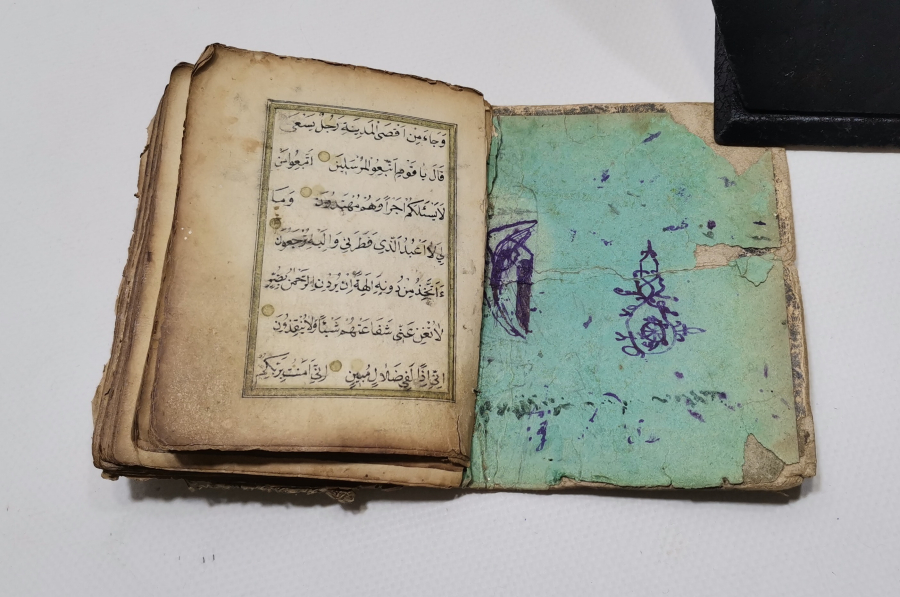 وَجَاءَ مِنْ اَقْصَى الْمَدِينَةِ رَجُلٌ يَسْعٰى
قَالَ يَا قَوْمِ اتَّبِعُوا الْمُرْسَلِينَ اتَّبِعُوا مَنْ
لَا يَسْئَلُكُمْ اَجْراً وَهُمْ مُهْتَدُونَ وَمَا
لِيَ لَا اَعْبُدُ الَّذِي فَطَرَنِي وَاِلَيْهِ تُرْجَعُونَ
ءَاَتَّخِذُ مِنْ دُونِهِ اٰلِهَةً اِنْ يُرِدْنِ الرَّحْمٰنُ بِضُرٍّ
لَا تُغْنِ عَنِّي شَفَاعَتُهُمْ شَيْئًا وَلَا يُنْقِذُونِ
اِنِّي اِذًا لَفِي ضَلَالٍ مُبِينٍ اِنِّي اٰمَنْتُ بِرَبِّكُمْ